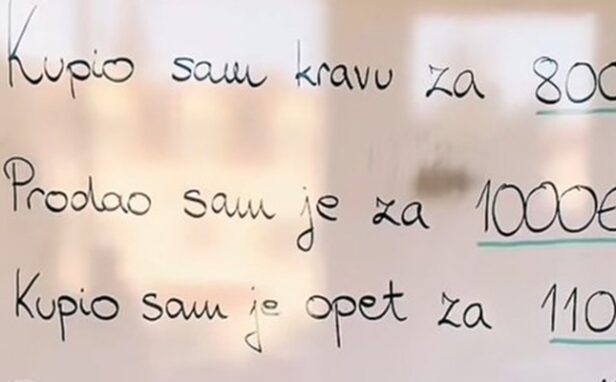 Kupio sam kravu za 800
Prodao sam je za 1000€
Kupio sam je opet za 110